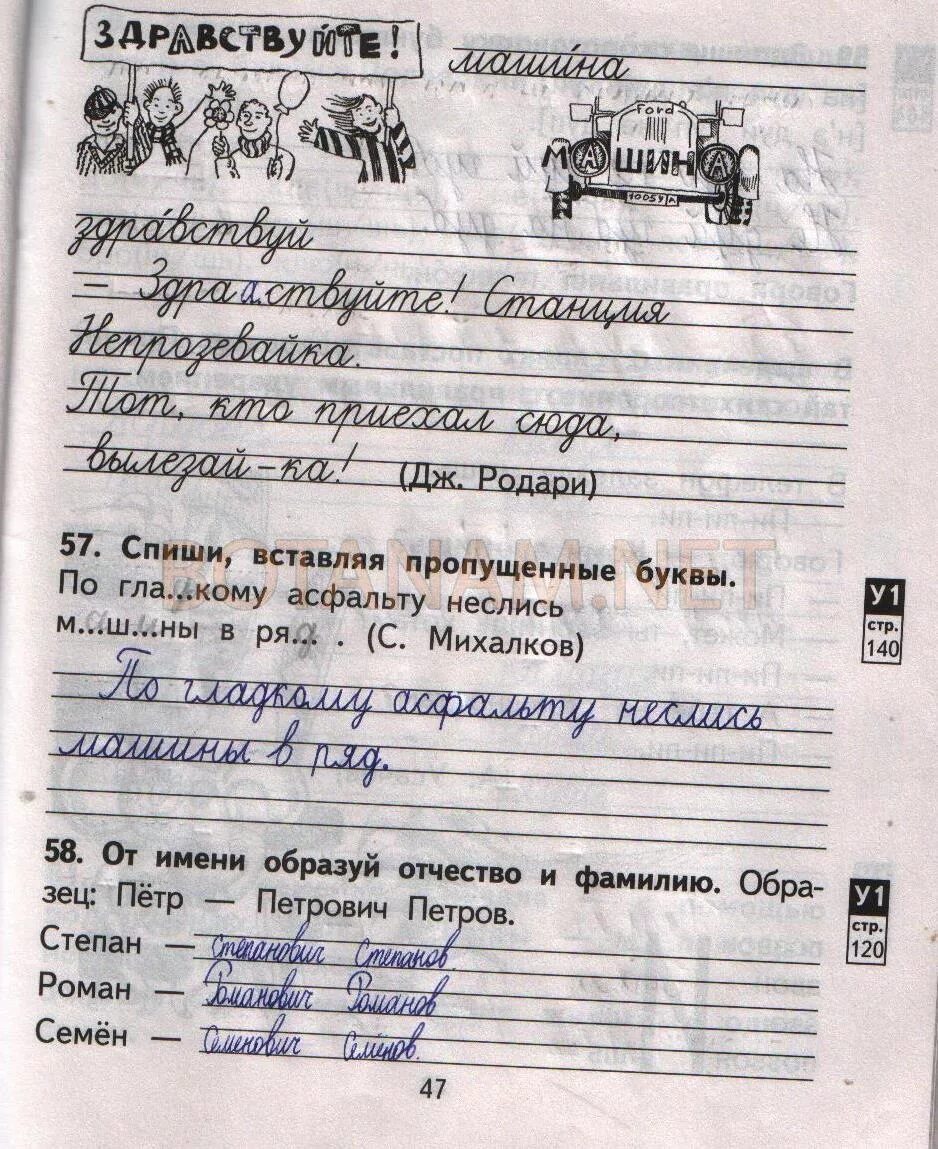 ЗДРАВСТВУЙТЕ!
маши́на
Ford
МАШИНА
10059 А
здра́вствуй
– Здраа.ствуйте! Станция
Непрозевайка.
Тот, кто приехал сюда,
вылезай-ка!
(Дж. Родари)
57. Спиши, вставляя пропущенные буквы.
По гла...кому асфальту неслись
м...ш...ны в ря... . (С. Михалков)
У1
стр.
140
По гладкому асфальту неслись
машины в ряд.
58. От имени образуй отчество и фамилию. Обра-
зец: Пётр — Петрович Петров.
У1
стр.
120
Степан — Степанович Степанов.
Роман — Романович Романов
Семён — Семенович Семёнов.
47
BOTANAM.NET